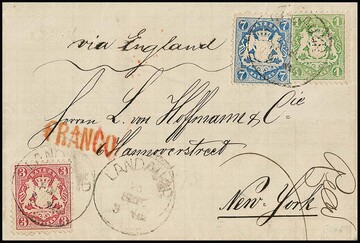 via England
7 BAYERN 7
1 BAYERN 1
Herrn L. von Hoffmann & Cie
FRANCO
Hannoverstreet
LANDAU
New-York
3 BAYERN 3